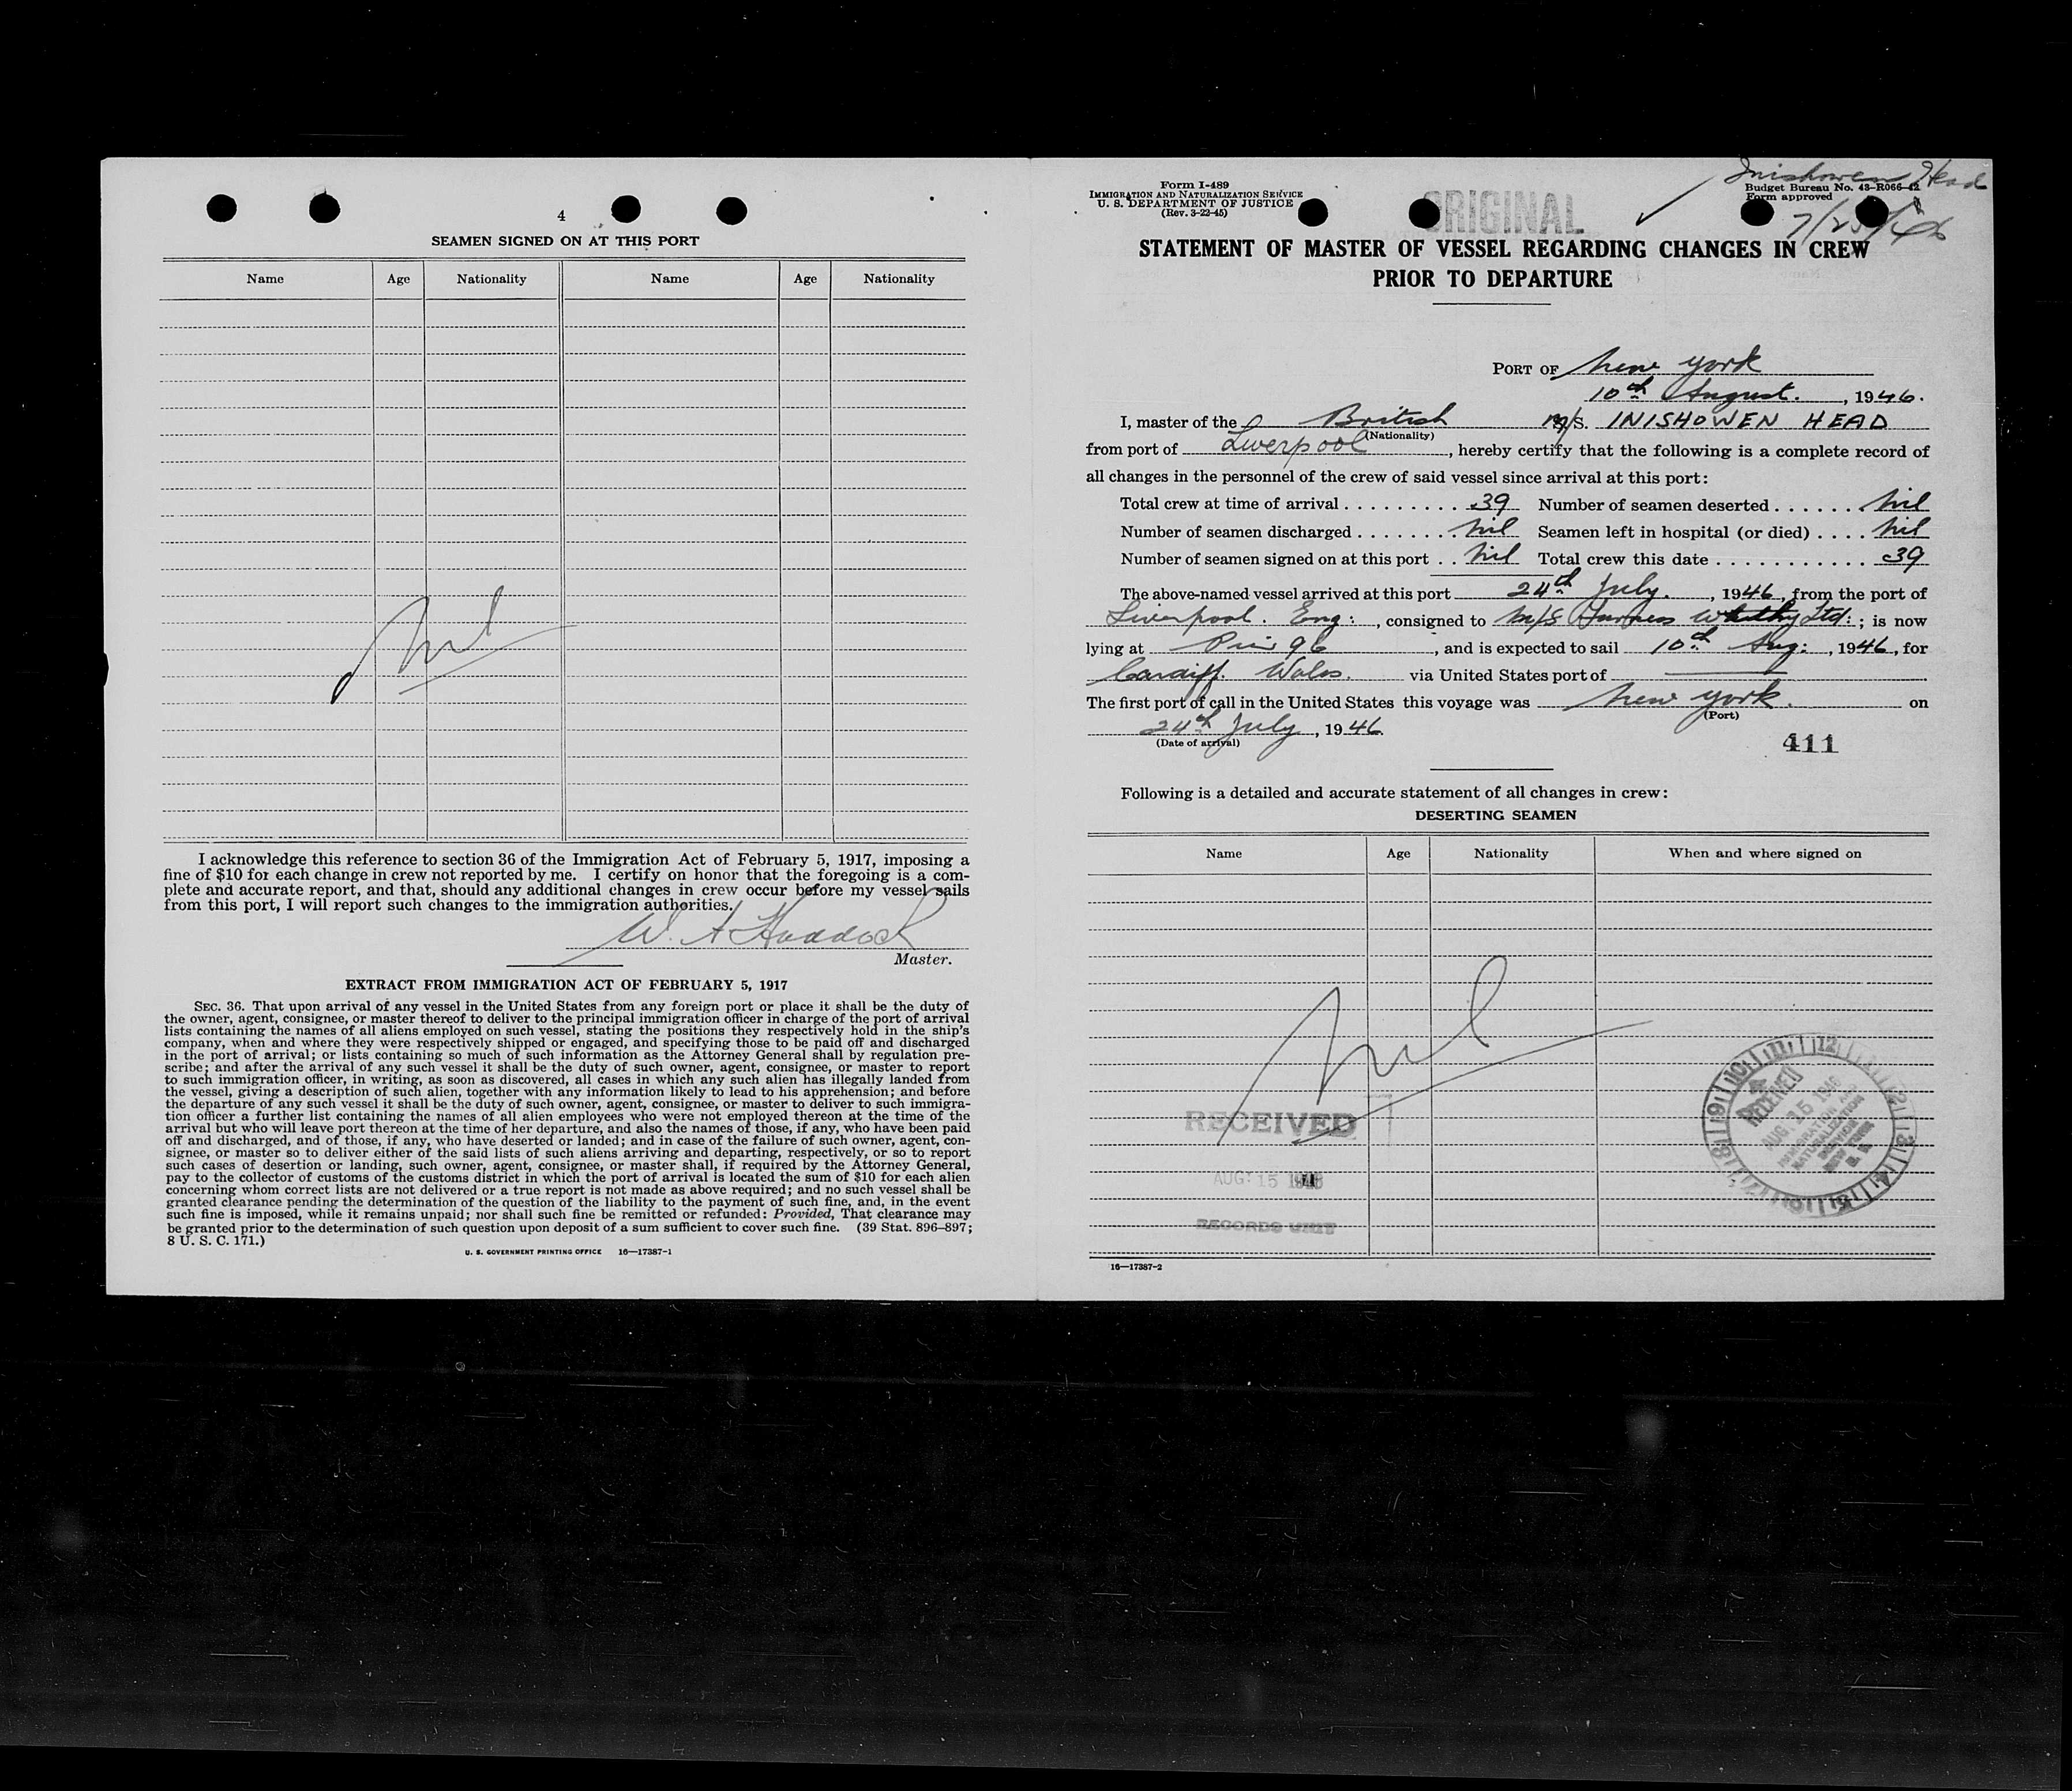 4
SEAMEN SIGNED ON AT THIS PORT
Name Age Nationality Name Age Nationality
Nil
I acknowledge this reference to section 36 of the Immigration Act of February 5, 1917, imposing a
fine of $10 for each change in crew not reported by me. I certify on honor that the foregoing is a com-
plete and accurate report, and that, should any additional changes in crew occur before my vessel sails
from this port, I will report such changes to the immigration authorities.
W. A Haddock
Master.
EXTRACT FROM IMMIGRATION ACT OF FEBRUARY 5, 1917
SEC. 36. That upon arrival of any vessel in the United States from any foreign port or place it shall be the duty of
the owner, agent, consignee, or master thereof to deliver to the principal immigration officer in charge of the port of arrival
lists containing the names of all aliens employed on such vessel, stating the positions they respectively hold in the ship's
company, when and where they were respectively shipped or engaged, and specifying those to be paid off and discharged
in the port of arrival; or lists containing so much of such information as the Attorney General shall by regulation pre-
scribe; and after the arrival of any such vessel it shall be the duty of such owner, agent, consignee, or master to report
to such immigration officer, in writing, as soon as discovered, all cases in which any such alien has illegally landed from
the vessel, giving a description of such alien, together with any information likely to lead to his apprehension; and before
the departure of any such vessel it shall be the duty of such owner, agent, consignee, or master to deliver to such immigra-
tion officer a further list containing the names of all alien employees who were not employed thereon at the time of the
arrival but who will leave port thereon at the time of her departure, and also the names of those, if any, who have been paid
off and discharged, and of those, if any, who have deserted or landed; and in case of the failure of such owner, agent, con-
signee, or master so to deliver either of the said lists of such aliens arriving and departing, respectively, or so to report
such cases of desertion or landing, such owner, agent, consignee, or master shall, if required by the Attorney General,
pay to the collector of customs of the customs district in which the port of arrival is located the sum of $10 for each alien
concerning whom correct lists are not delivered or a true report is not made as above required; and no such vessel shall be
granted clearance pending the determination of the question of the liability to the payment of such fine, and, in the event
such fine is imposed, while it remains unpaid; nor shall such fine be remitted or refunded: Provided, That clearance may
be granted prior to the determination of such question upon deposit of a sum sufficient to cover such fine. (39 Stat. 896–897;
8 U. S. C. 171.)
U. S. GOVERNMENT PRINTING OFFICE 16—17387-1
Form I-489
IMMIGRATION AND NATURALIZATION SERVICE
U. S. DEPARTMENT OF JUSTICE
(Rev. 3-22-45)
ORIGINAL
Inishowen Head
Budget Bureau No. 43-R066-42
Form approved
STATEMENT OF MASTER OF VESSEL REGARDING CHANGES IN CREW
PRIOR TO DEPARTURE
PORT OF New York
10th August. , 1946.
I, master of the British M/S. INISHOWEN HEAD
(Nationality)
from port of Liverpool , hereby certify that the following is a complete record of
all changes in the personnel of the crew of said vessel since arrival at this port:
Total crew at time of arrival . . . . . . . . . 39 Number of seamen deserted . . . . . . Nil
Number of seamen discharged . . . . . . . . Nil Seamen left in hospital (or died) . . . . Nil
Number of seamen signed on at this port . . Nil Total crew this date . . . . . . . . . . . . 39
The above-named vessel arrived at this port 24th July. , 1946 , from the port of
Liverpool. Eng: , consigned to M/S Furness Whithy Ltd: ; is now
lying at Pier 96 , and is expected to sail 10th Aug: , 1946 , for
Cardiff. Wales. via United States port of
The first port of call in the United States this voyage was New York. on
(Port)
24th July , 1946.
(Date of arrival)
411
Following is a detailed and accurate statement of all changes in crew:
DESERTING SEAMEN
Name Age Nationality When and where signed on
Nil
RECEIVED
AUG 15
RECORDS UNIT
RECEIVED
AUG 15 1946
IMMIGRATION AND
NATURALIZATION
SERVICE
NEW YORK
N. Y.
16—17387-2